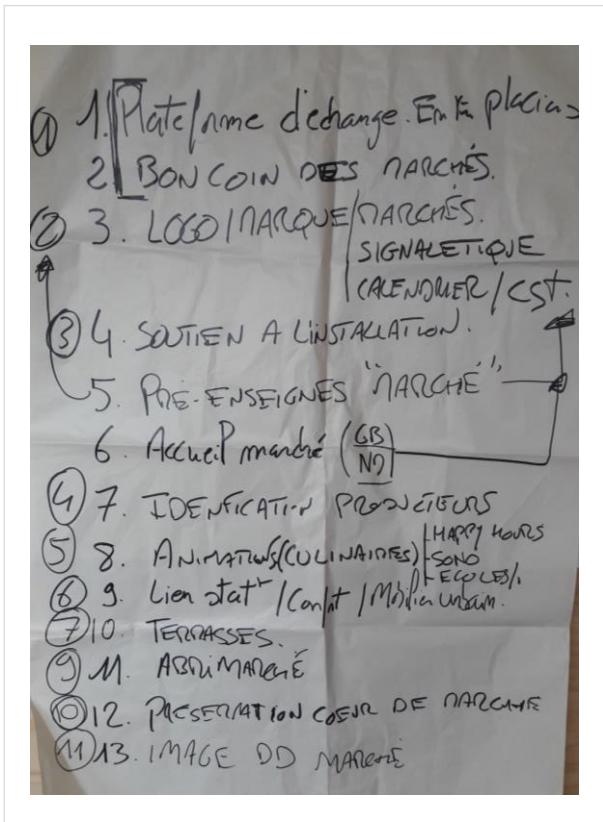 ① 1. Plateforme d'échange. Entre placiers
2. BON COIN DES MARCHÉS.
② 3. LOGO/MARQUE/MARCHÉS.
SIGNALETIQUE
CALENDRIER/CST.
③ 4. SOUTIEN A L'INSTALLATION.
5. PRE-ENSEIGNES "MARCHÉ"
6. Accueil marché (GB
ND)
④ 7. IDENFICATION PRODUCTEURS
⑤ 8. ANIMATIONS (CULINAIRES) HAPPY HOURS
SONO
ECOLES/.
⑥ 9. Lien statt / / Mobilier urbain.
⑦ 10. TERRASSES.
⑨ 11. ABRI MARCHÉ
⑩ 12. PRESERVATION COEUR DE MARCHE
⑪ 13. IMAGE DD MARCHÉ